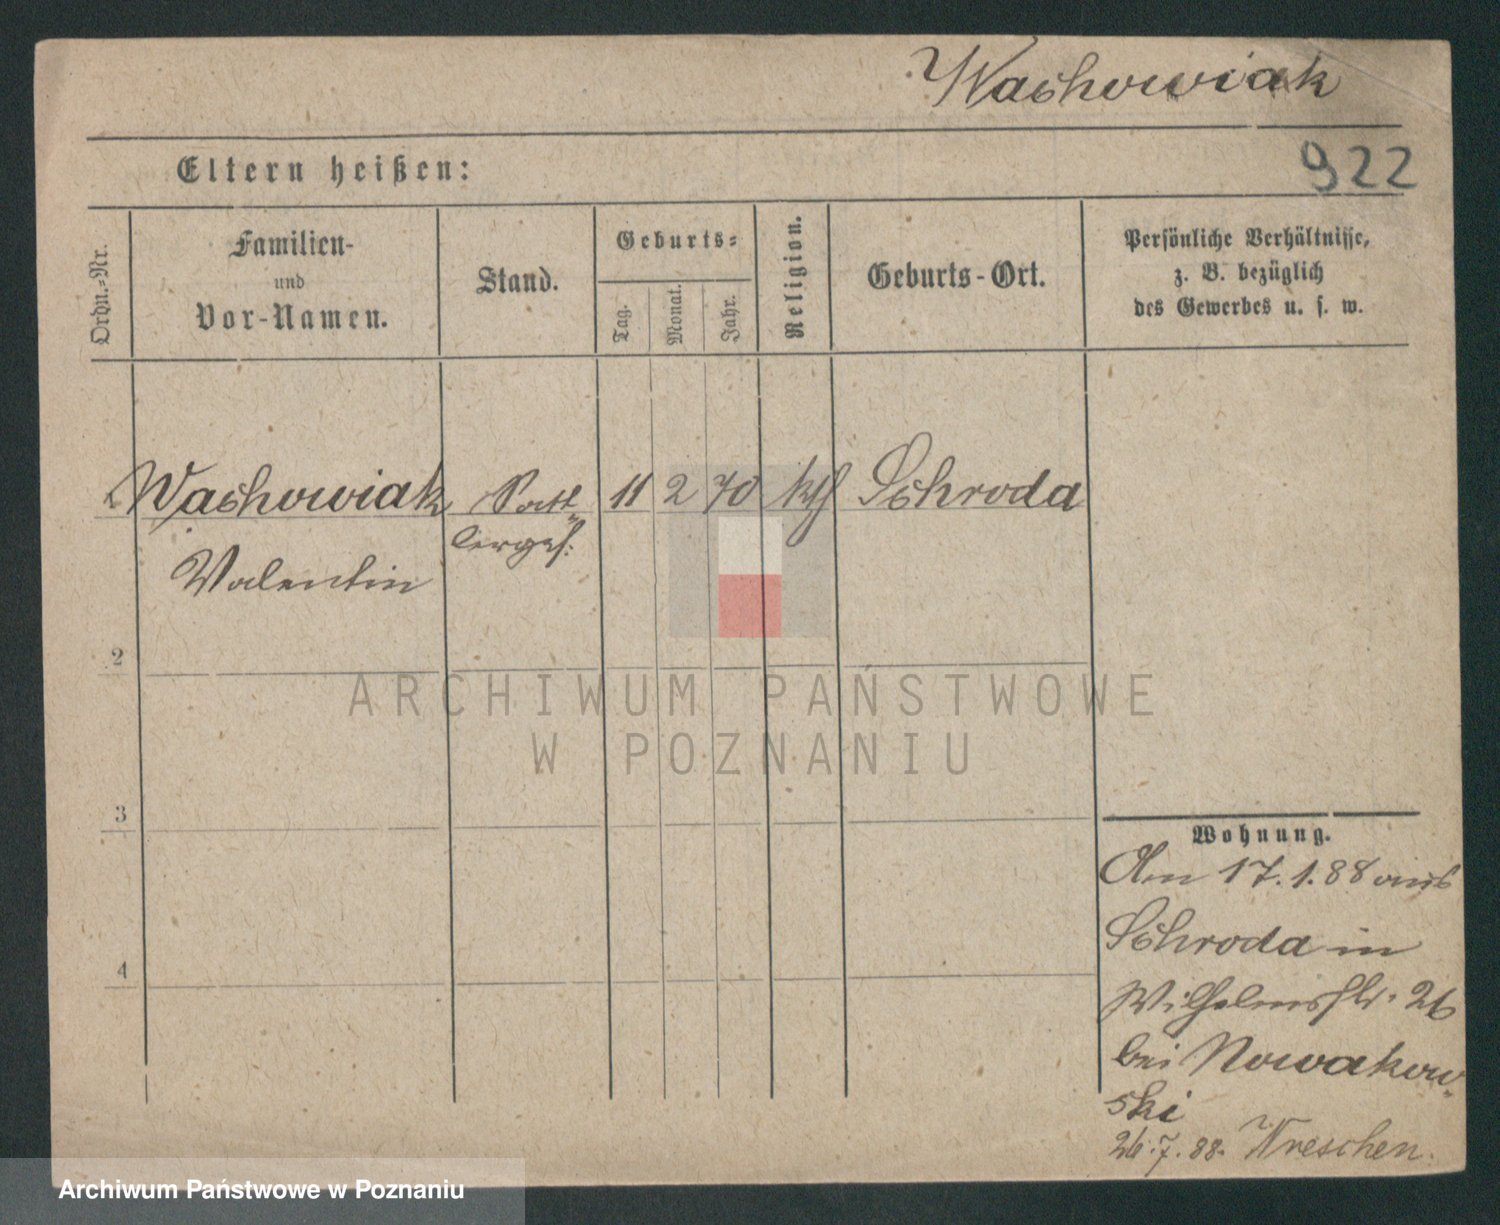 Wachowiak
922
Eltern heißen:
Ordn.-Nr.
Familien-
und
Vor-Namen.
Stand.
Geburts-
Tag.
Monat.
Jahr.
Religion.
Geburts-Ort.
Persönliche Verhältnisse,
z. B. bezüglich
des Gewerbes u. s. w.
1 Wachowiak Satt- 11 2 70 kth Schroda
lerges:
Valentin
2
3
4
Wohnung.
Am 17.1.88 aus
Schroda in
Wilhelmstr. 26
bei Nowakow-
ski
26.7.88. Wreschen.
ARCHIWUM PAŃSTWOWE
W POZNANIU
Archiwum Państwowe w Poznaniu